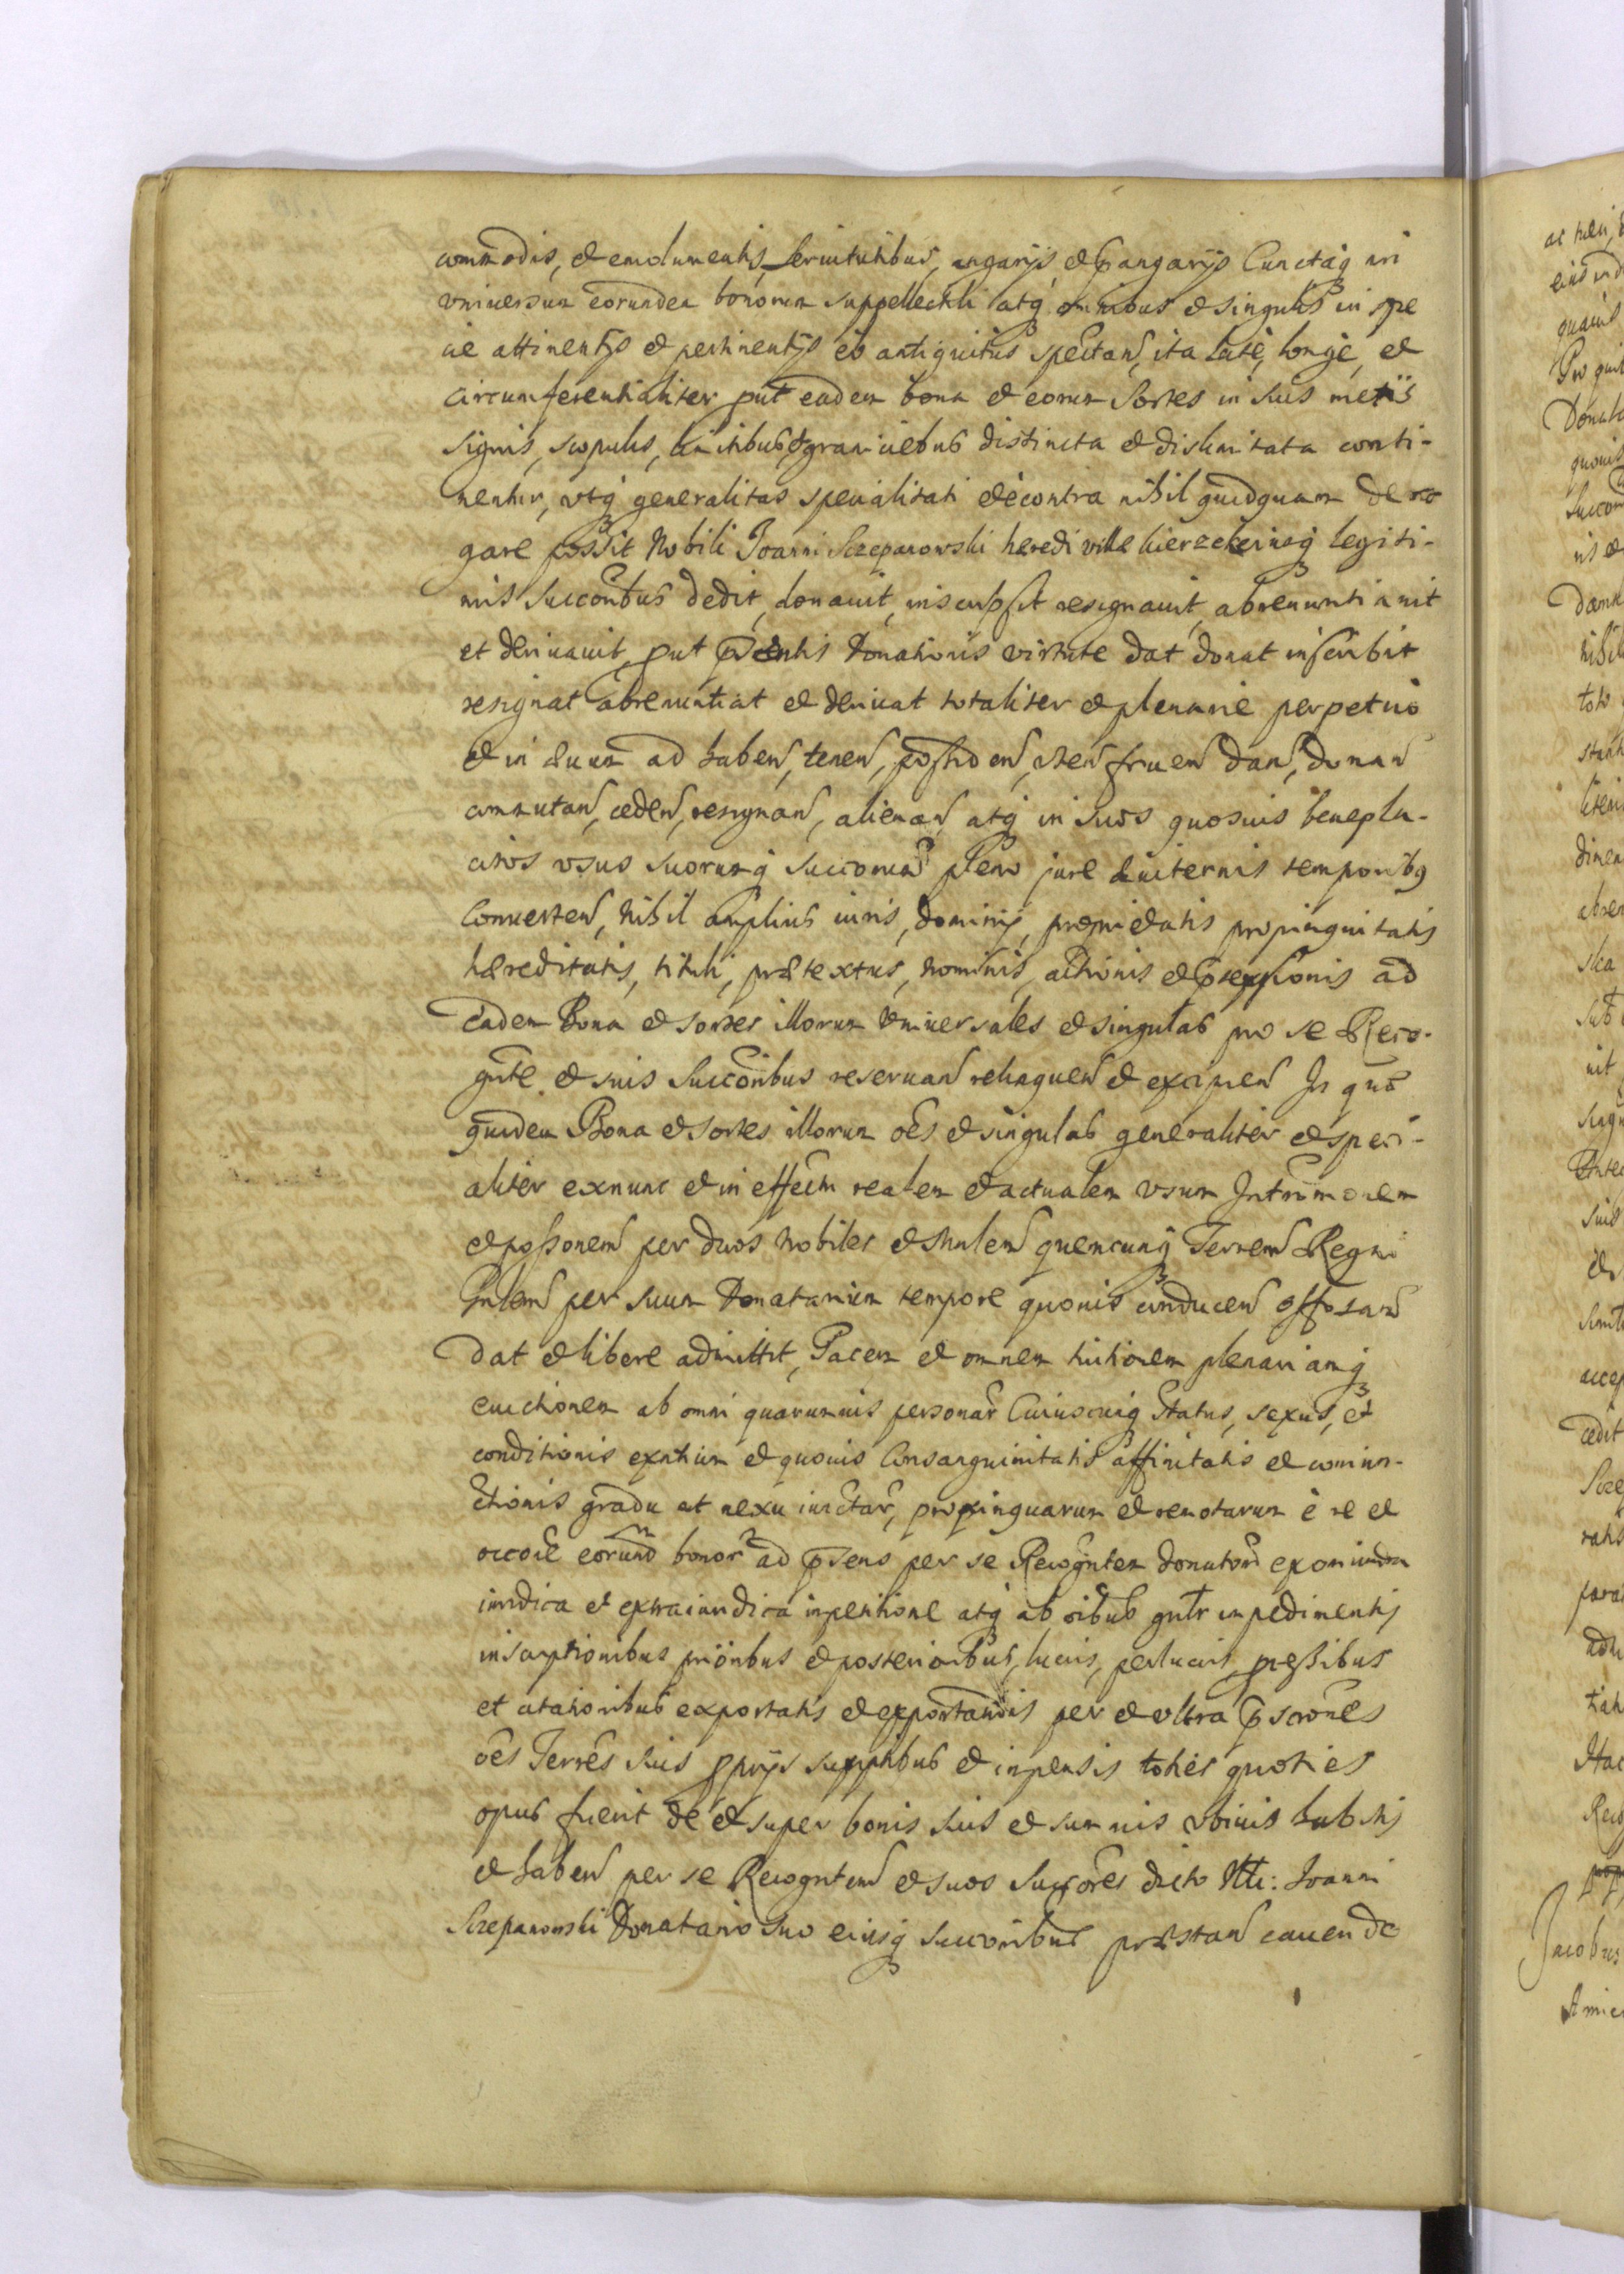 commodis, et emolumentis, seruitutibus, angarijs et pangarijs Cunctaq in
vniuersum eorundem bonorum suppellectili atq omnibus et singulis in spe
cie attinentijs et pertinentijs eò antiquitus spectan, ita latè, longè, et
circumferentialiter put eadem bona et eorum sortes in suis metis
signis, scopulis, limitibus, et graniciebus distincta et dislimitata conti-
nentur, vtq generalitas specialitati et è contra nihil quidquam dero
gare possit Nobili Joanni Szczepanowski heredi villæ legiti-
mis Succoribus dedit, donauit, inscripsit resignauit, abrenuntiauit
et deriuauit, put pntis Donationis virtute dat donat inscribit
resignat abrenuntiat et deriuat totaliter et plenarie perpetuò
et in æuum ad haben, tenen, possiden, vten fruen dan, donan
commutan, ceden, resignan, alienan atq in suos quosuis benepla-
citos vsus suorumq succorum pleno jure æuiternis temporibg
Conuerten, Nihil amplius iuris, dominij, proprietatis propinquitatis
hæreditatis, tituli, prætextus, nominis, actionis et ad
eadem Bona et sortes illorum vniuersales et singulas pro se Reco-
gnte et suis Succoribus reseruan relinquen et excipien In quæ
quidem Bona et sortes illorum oes et singulas generaliter et speci-
aliter exnunc et in effectm realem et actualem vsum Intromonem
et possonem per duos Nobiles et quemcunq Terren Regni
per suum Donatarium tempore quouis conducen
dat et libere admittit, Pacem et omnem tuitionem plenariamq
euictionem ab omni quarumuis personar Cuiuscunq status, sexus, et
conditionis exntium et quouis Consanguinitatis affinitatis et coniun-
ctionis gradu et nexu iunctar, propinquarum et remotarum è re et
occoe eorund bonor ad psens per se Recogntem donator exoriunda
iuridica et extraiuridica impetitione atq ab oibus gnlr impedimentis
inscriptionibus prioribus et posterioribus, lucris, perlucris, pressibus
et citationibus exportatis et exportandis per et vltra pscrones
oes Terres suis pprijs sumptibus et inpensis toties quoties
opus fuerit de et super bonis suis et summis vbiuis habitis
et haben per se Recogntem et suos Succores dicto Joanni
Szczepanowski Donatario suo eiusq succoribus præstan cauende